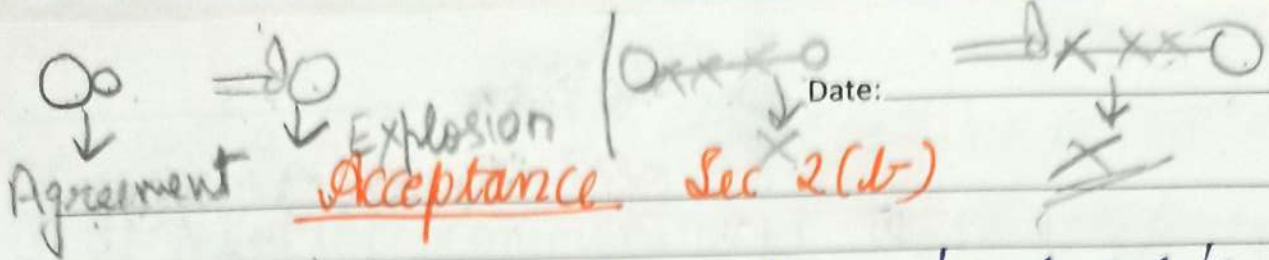 Date:
Explosion
Agreement
Acceptance Sec 2(b)